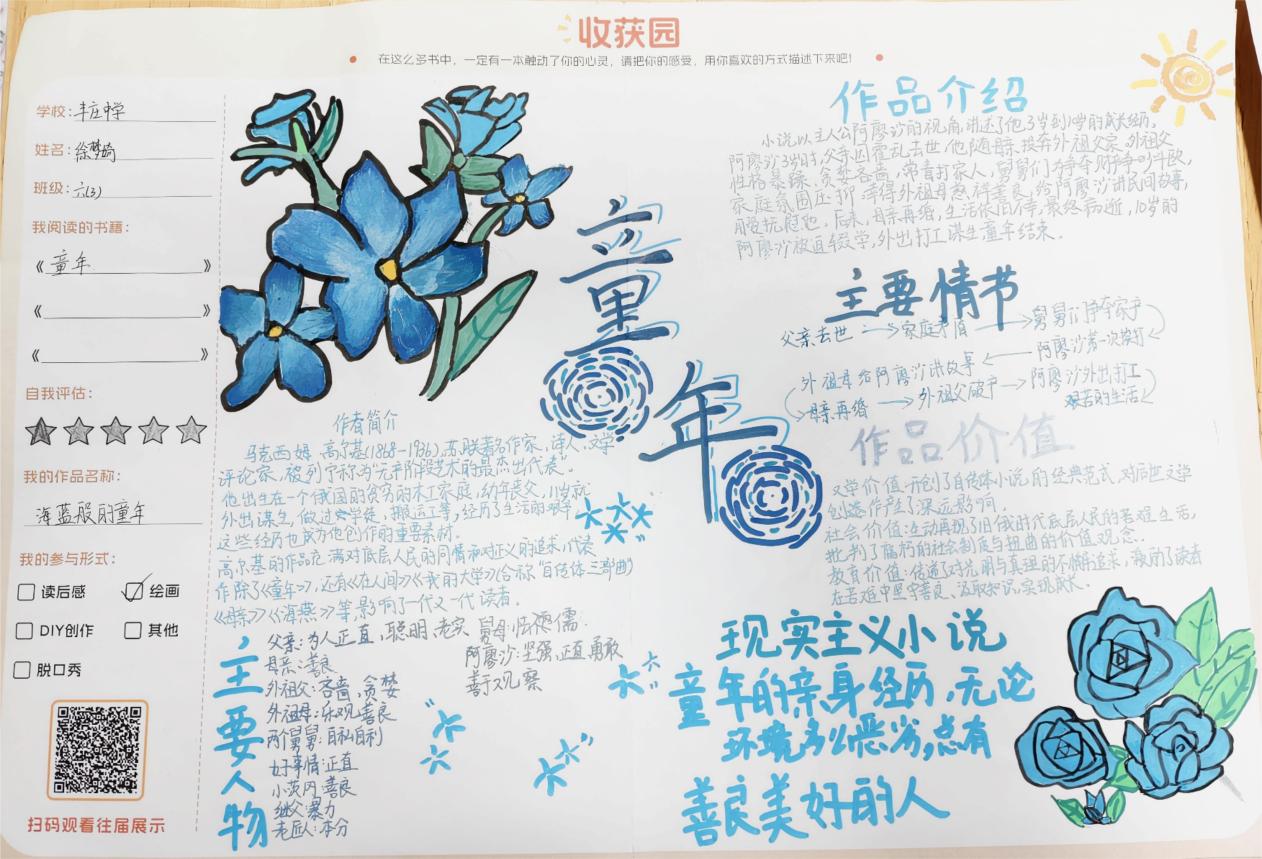 收获园
在这么多书中，一定有一本触动了你的心灵，请把你的感受，用你喜欢的方式描述下来吧！
学校：丰庄中学
姓名：徐梦琦
班级：六(3)
我阅读的书籍：
《童年》
《 》
《 》
自我评估：
我的作品名称：
海蓝般的童年
我的参与形式：
读后感 绘画
DIY创作 其他
脱口秀
扫码观看往届展示
童年
作者简介
马克西姆·高尔基(1868-1936)，苏联著名作家、诗人、文学
评论家，被列宁称为“无产阶段艺术的最杰出代表”。
他出生在一个俄国的贫穷的木工家庭，幼年丧父，11岁就
外出谋生，做过学徒、搬运工等，经历了生活的艰辛
这些经历也成为他创作的重要素材。
高尔基的作品充满对底层人民的同情和对正义的追求，代表
作除了《童年》，还有《在人间》《我的大学》(合称“自传体三部曲)
《母亲》《海燕》等，影响了一代又一代读者。
主要人物
父亲：为人正直，聪明，老实
母亲：善良
外祖父：吝啬，贪婪
外祖母：乐观，善良
两个舅舅：自私自利
好事情：正直
小茨冈：善良
继父：暴力
老匠人：本分
舅母：怯懦
阿廖沙：坚强，正直，勇敢
善于观察
作品介绍
小说以主人公阿廖沙的视角，讲述了他3岁到10岁的成长经历，
阿廖沙3岁时，父亲因霍乱去世，他随母亲投奔外祖父家，外祖父
性格暴躁、贪婪吝啬，常毒打家人，舅舅们为争夺财产争吵斗殴，
家庭氛围压抑，幸得外祖母慈祥善良，给阿廖沙讲民间故事，
用爱抚慰他，后来，母亲再婚，生活依旧不幸，最终病逝，10岁的
阿廖沙被迫辍学，外出打工谋生童年结束。
主要情节
父亲去世→家庭矛盾→舅舅们争夺家产
外祖母给阿廖沙讲故事←阿廖沙第一次挨打
母亲再婚→外祖父破产→阿廖沙外出打工
艰苦的生活
作品价值
文学价值：开创了自传体小说的经典范式，对后世文学
创作产生了深远影响。
社会价值：生动再现了旧俄时代底层人民的苦难生活，
批判了腐朽的社会制度与扭曲的价值观念。
教育价值：传递了对光明与真理的不懈追求，激励了读者
在苦难中坚守善良、汲取知识，实现成长。
现实主义小说
童年的亲身经历，无论
环境多么恶劣，总有
善良美好的人